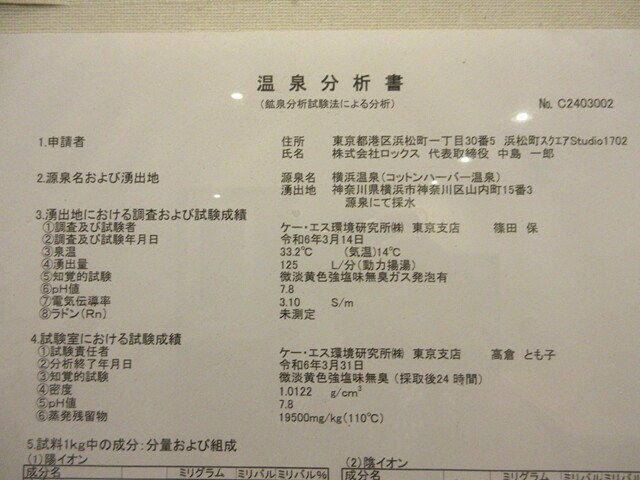 温泉分析書
(鉱泉分析試験法による分析)
No. C2403002
1.申請者 住所 東京都港区浜松町一丁目30番5 浜松町スクエアStudio1702
氏名 株式会社ロックス 代表取締役 中島 一郎
2.源泉名および湧出地 源泉名 横浜温泉(コットンハーバー温泉)
湧出地 神奈川県横浜市神奈川区山内町15番3
源泉にて採水
3.湧出地における調査および試験成績
①調査及び試験者 ケー・エス環境研究所㈱ 東京支店 篠田 保
②調査及び試験年月日 令和6年3月14日
③泉温 33.2℃ (気温)14℃
④湧出量 125 L/分(動力揚湯)
⑤知覚的試験 微淡黄色強塩味無臭ガス発泡有
⑥pH値 7.8
⑦電気伝導率 3.10 S/m
⑧ラドン(Rn) 未測定
4.試験室における試験成績
①試験責任者 ケー・エス環境研究所㈱ 東京支店 高倉 とも子
②分析終了年月日 令和6年3月31日
③知覚的試験 微淡黄色強塩味無臭 (採取後24時間)
④密度 1.0122 g/cm³
⑤pH値 7.8
⑥蒸発残留物 19500mg/kg(110℃)
5.試料1kg中の成分:分量および組成
(1)陽イオン (2)陰イオン
成分名 ミリグラム ミリバル ミリバル% 成分名 ミリグラム ミリバル ミリバル